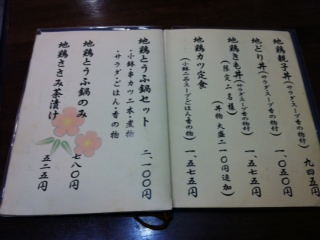 地鶏親子丼(サラダ・スープ・香の物付) 九四五円
地どり丼(サラダ・スープ・香の物付) 一、〇五〇円
地鶏きも丼(サラダ・スープ・香の物付) 一、五七五円
(限定二名様) (丼物大盛二一〇円追加)
地鶏カツ定食 一、五七五円
(小鉢二品・スープ・ごはん・香の物)
地鶏とうふ鍋セット 二、一〇〇円
・小鉢・串カツ二本・煮物
・サラダ・ごはん・香の物
地鶏とうふ鍋のみ 七八〇円
地鶏ささみ茶漬け 五二五円